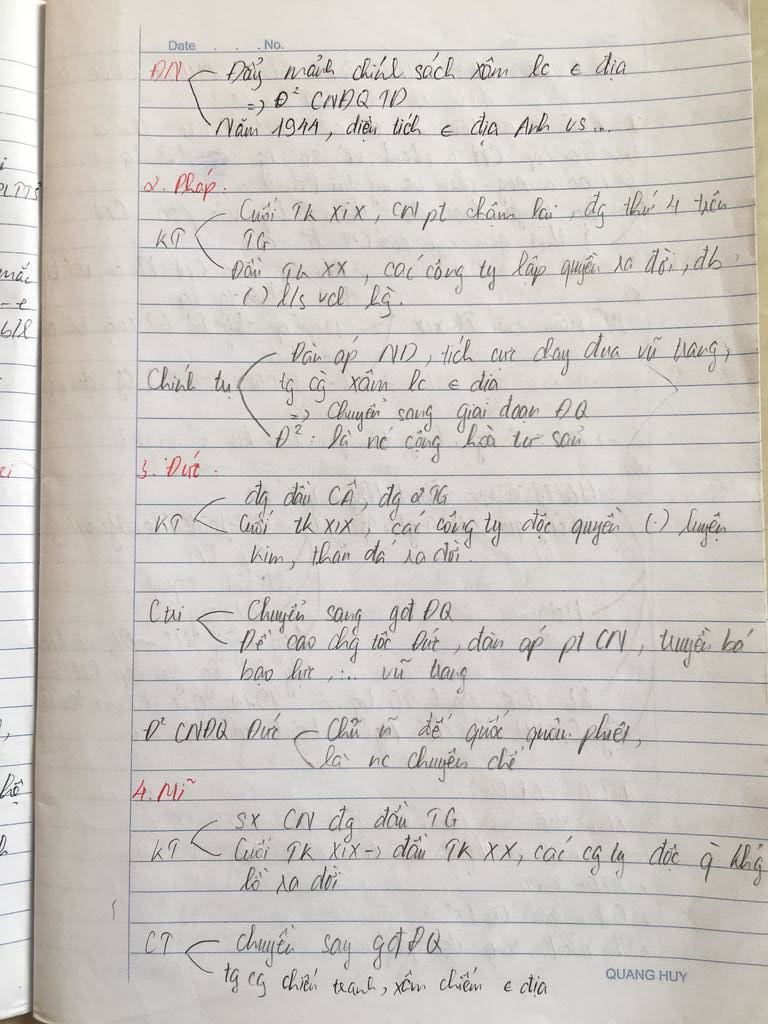 Date . . . . No.
ĐN Đẩy mảnh chính sách xâm lc ϵ địa
=> Đ² CNĐQ TD
Năm 1944, diện tích ϵ địa Anh vs...
2. Pháp.
Cuối TK XIX, CN pt chậm lại, đg thứ 4 trên
KT TG
Đầu TK XX, các công ty lập quyền ra đời, đb
(.) l/s vcl hg.
Đàn áp ND, tích cực chạy đua vũ trang,
Chính trị tg cg xâm lc ϵ địa
=> Chuyển sang giai đoạn ĐQ
Đ²: là nc cộng hòa tư sản
3. Đức.
đg đầu CÂ, đg 2 TG
KT Cuối tk XIX, các công ty độc quyền (.) luyện
kim, than đá ra đời.
Ctrị Chuyển sang gđ ĐQ
Đề cao chg tộc Đức, đàn áp pt CN, truyền bá
bạo lực, ... vũ trang
Đ² CNĐQ Đức Chủ n̄ đế quốc quân phiệt,
là nc chuyên chế
4. Mĩ
SX CN đg đầu TG
KT Cuối TK XIX -> đầu TK XX, các cg ty độc q̀ khg
lồ ra đời
CT Chuyển sag gđ ĐQ
tg cg chiến tranh, xâm chiếm ϵ địa
QUANG HUY